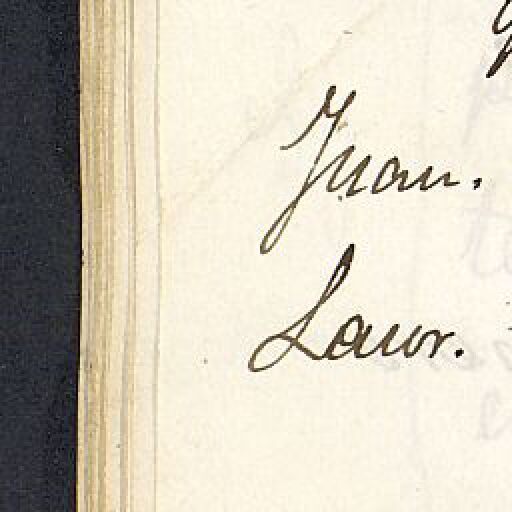 Juan.
Laur.